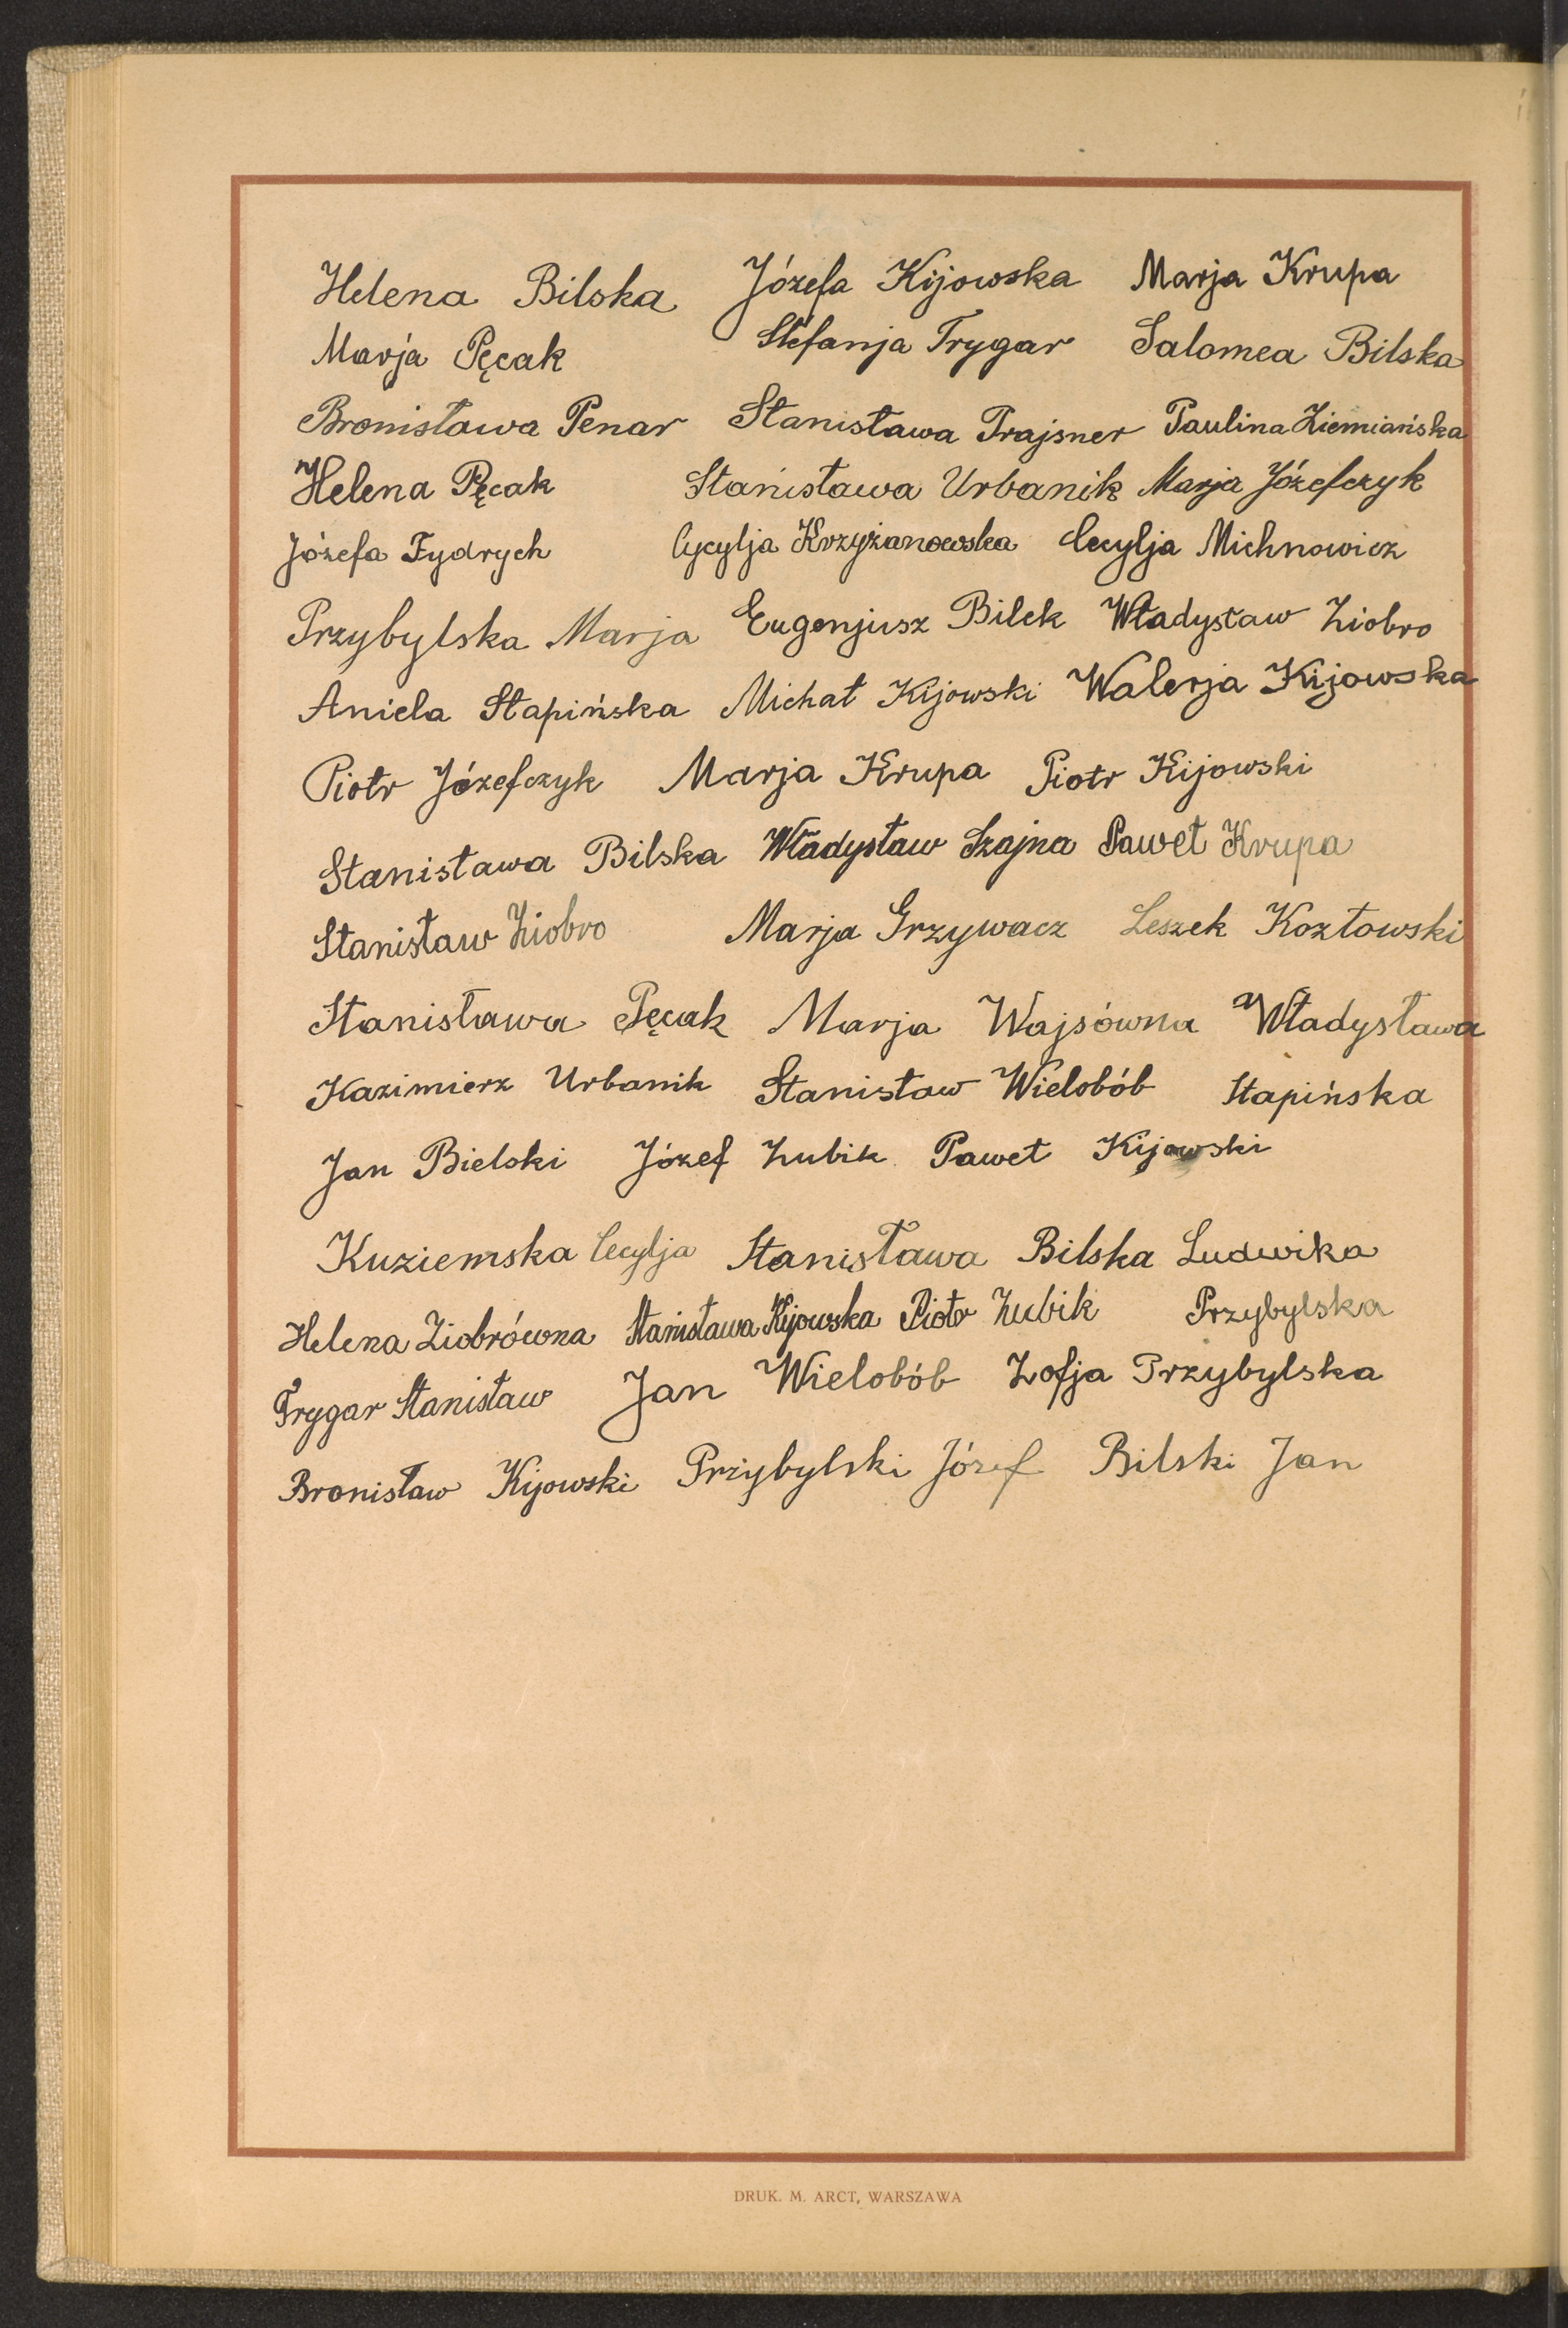 Helena Bilska Józefa Kijowska Marja Krupa
Marja Pęcak Stefanja Trygar Salomea Bilska
Bronisława Penar Stanisława Trajsner Paulina Ziemiańska
Helena Pęcak Stanisława Urbanik Marja Józefczyk
Józefa Fydrych Cycylja Krzyżanowska Cecylja Michnowicz
Przybylska Marja Eugenjusz Bilek Władysław Ziobro
Aniela Stapińska Michał Kijowski Walerja Kijowska
Piotr Józefczyk Marja Krupa Piotr Kijowski
Stanisława Bilska Władysław Szajna Paweł Krupa
Stanisław Ziobro Marja Grzywacz Leszek Kozłowski
Stanisława Pęcak Marja Wajsówna Władysława
Kazimierz Urbanik Stanisław Wielobób Stapińska
Jan Bielski Józef Zubik Paweł Kijowski
Kuziemska Cecylja Stanisława Bilska Ludwika
Helena Ziobrówna Stanisława Kijowska Piotr Zubik Przybylska
Trygar Stanisław Jan Wielobób Zofja Przybylska
Bronisław Kijowski Przybylski Józef Bilski Jan
DRUK. M. ARCT, WARSZAWA